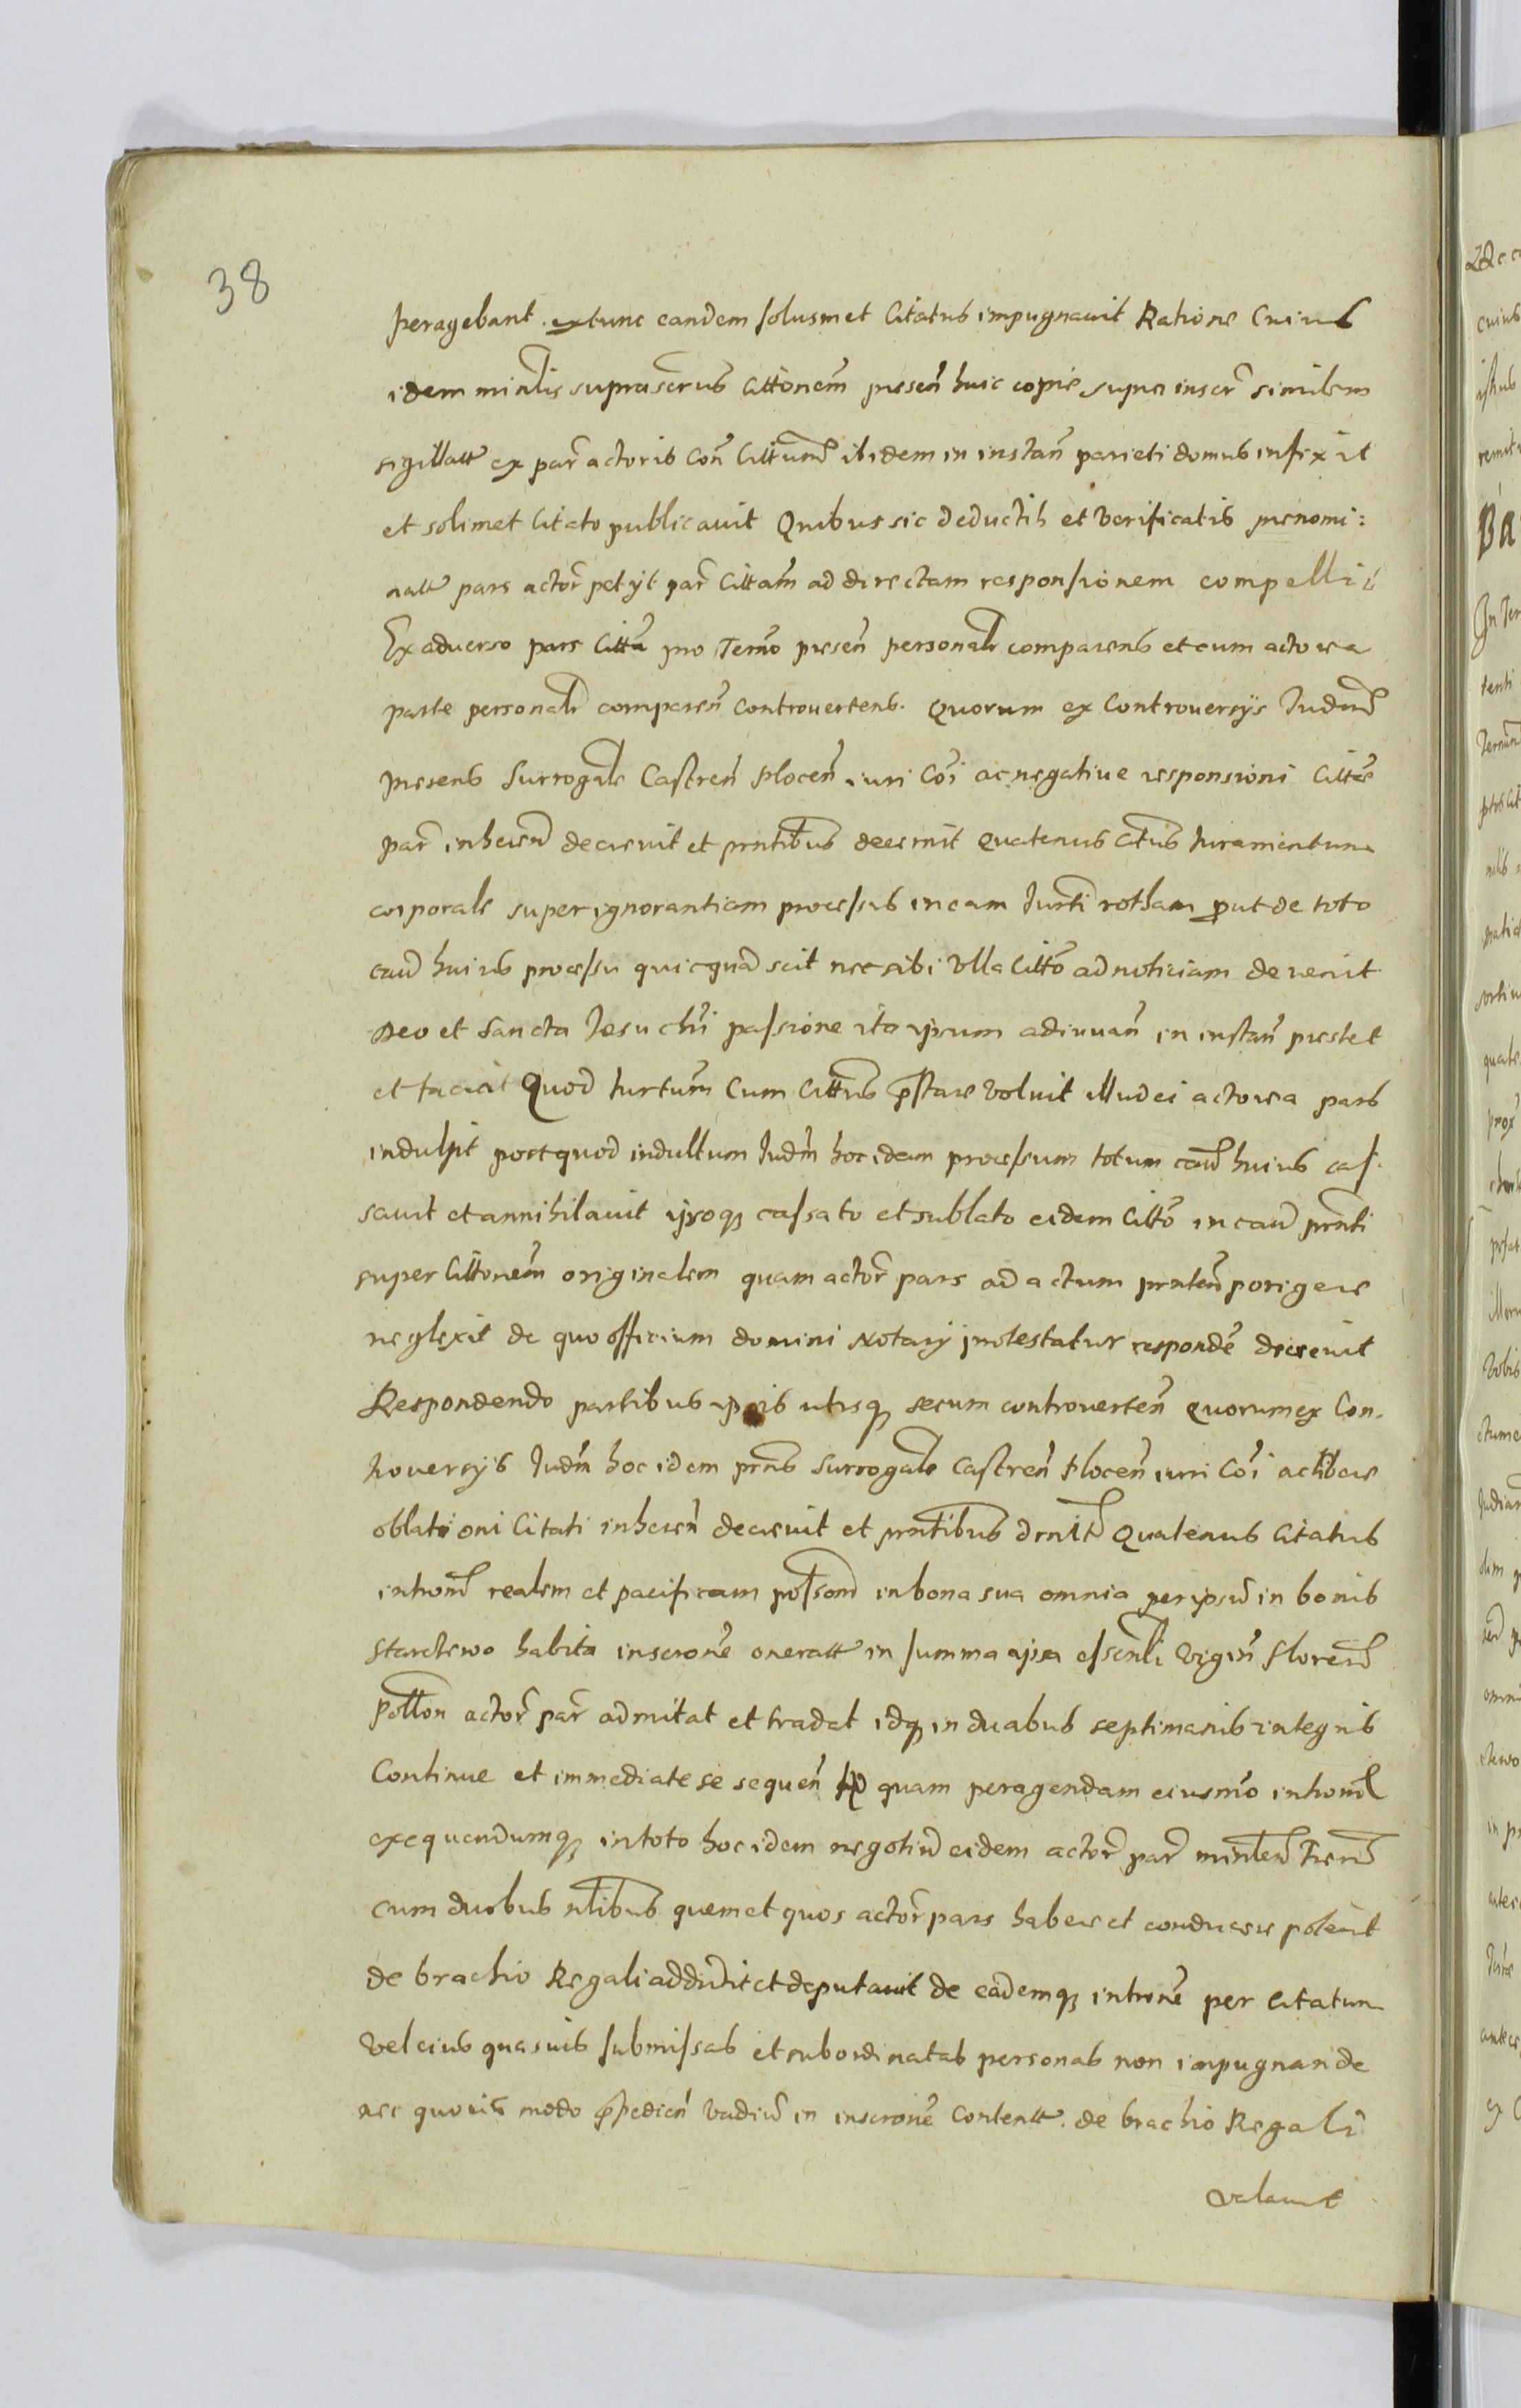 38
peragebant extunc eandem solusmet Citatus impugnavit Ratione Cuius
idem minlis suprascrus Cittonem presen huic copie supra inscr similem
sigillatt ex par actoris Con Cittum ibidem in instan parieti domus infixit
et solimet Citato publicavit Quibus sic deductis et verificatis prenomi:
natt pars actor petyt par Cittam ad directam responsionem compelli
Ex adverso pars Citta pro Termo presen personalr comparens et cum actorea
parte personalr comparen controvertens. Quorum ex Controversys Judm
presens Surrogale Castren Plocen iuri Coi ac negative responsioni Citte
par inheren decrevit et prntibus decernit quatenus Ctus Juramentum
corporale super ignorantiam processus in eam Jurti rotham prout de toto
caus huius processu quicquam scit nec sibi ulla Citto ad noticiam devenit
Deo et Sancta Jesu Chri passione ita ipsum adiuvan in instan prestet
et faciat Quod Jurtum Cum Cittus prstare voluit illud ei actorea pars
indulsit post quod indultum Judm hoc idem processum totum caus huius cas
savit et annihilavit ipsoq cassato et sublato eidem Citto in caus prnti
super Cittonem originalem quam actor pars ad actum prntem porigere
neglexit de quo officium domini Notary protestatur responde decrevit
Respondendo partibus ipsis utrisq secum controverten Quorum ex Con.
troversys Judm hoc idem prns Surrogale Castren Plocen iuri Coi ac libere
oblationi Citati inheren decrevit et prntibus drnit Quatenus Citatus
introm realem et pacificam possom in bona sua omnia per ipsum in bonis
Starczewo habita inscrone oneratt in summa ipsa essenli vigin florenor
Potton actor par admitat et tradat idq in duabus septimanis integris
Continue et immediate se sequen quam peragendam eiusmo introm
exequendumq in toto hoc idem negotium eidem actor par minlem Tren
cum duobus nlibus quem et quos actor pars habere et conducere poterit
de brachio Regali addidit et deputavit de eademq introne per Citatum
vel eius quasvis submissas et subordinatas personas non impugnande
nec quovis modo prpedien vadio in inscrone contentt. de brachio Regali
valavit